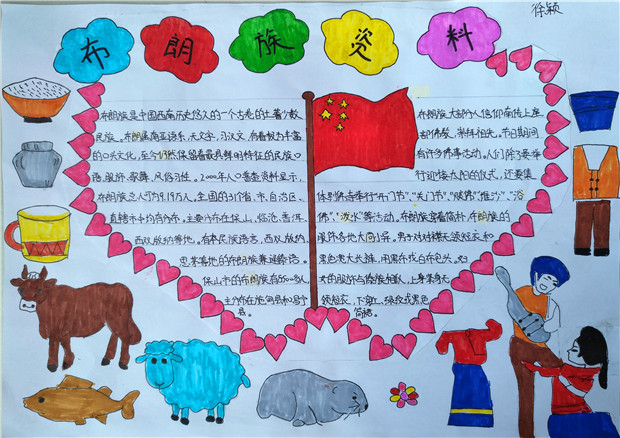 徐颖
布朗族资料
布朗族是中国西南历史悠久的一个古老的土著少数
民族。布朗属南亚语系,无文字,习汉文,有着较为丰富
的口头文化,至今仍然保留着最具鲜明特征的民族口
语、服饰、歌舞、风俗习性。2000年人口普查资料显示,
布朗族总人口为9.19万人,全国的31个省、市、自治区、
直辖市中均有分布,主要分布在保山、临沧、普洱、
西双版纳等地。有本民族语言,西双版纳、
思茅等地的布朗族兼通傣语。
保山市的布朗族有8500多人,
主分布在施甸县和昌宁
县。
布朗族大部分人信仰南传上座
部佛教,崇拜祖先。节日期间
有许多佛事活动。人们除了要举
行迎接太阳的仪式,还要集
体到佛寺举行"开门节"、"关门节"、"赕佛"、"堆沙"、"浴
佛"、"泼水"等活动。布朗族穿着简朴,布朗族的
服饰各地大同小异。男子对对襟无领短衣和
黑色宽大长裤,用黑布或白布包头。妇
女的服饰与傣族相似,上身穿身无
领短衣,下身红、绿纹或黑色
筒裙。